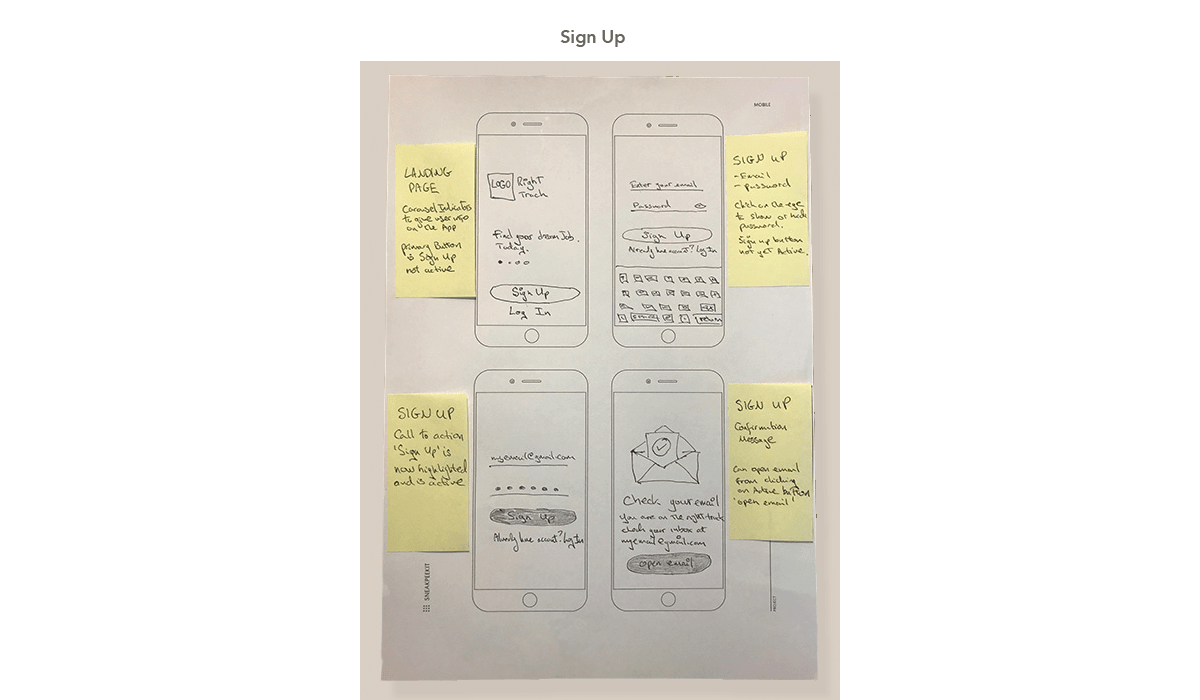 Sign Up
MOBILE
LANDING
PAGE
Carousel Indicators
to give user info
on the App
primary Button
is Sign Up
not active
LOGO
Right
Track
Find your dream Job.
Today.
Sign Up
Log In
Enter your email
Password
Sign Up
Already have account? Log In
return
SIGN UP
- Email
- password
Click on the eye
to show or hide
password.
Sign up button
not yet Active.
SIGN UP
Call to action
'Sign Up' is
now highlighted
and is active
myemail@gmail.com
Sign Up
Already have account? Log In
Check your email
You are on the right track
check your inbox at
myemail@gmail.com
open email
SIGN UP
Confirmation
Message
Can open email
from clicking
on Active button
'open email'
SNEAKPEEKIT
PROJECT